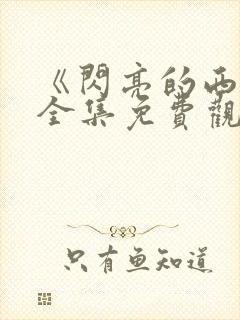 《閃亮的西
全集免費觀
只有魚知道